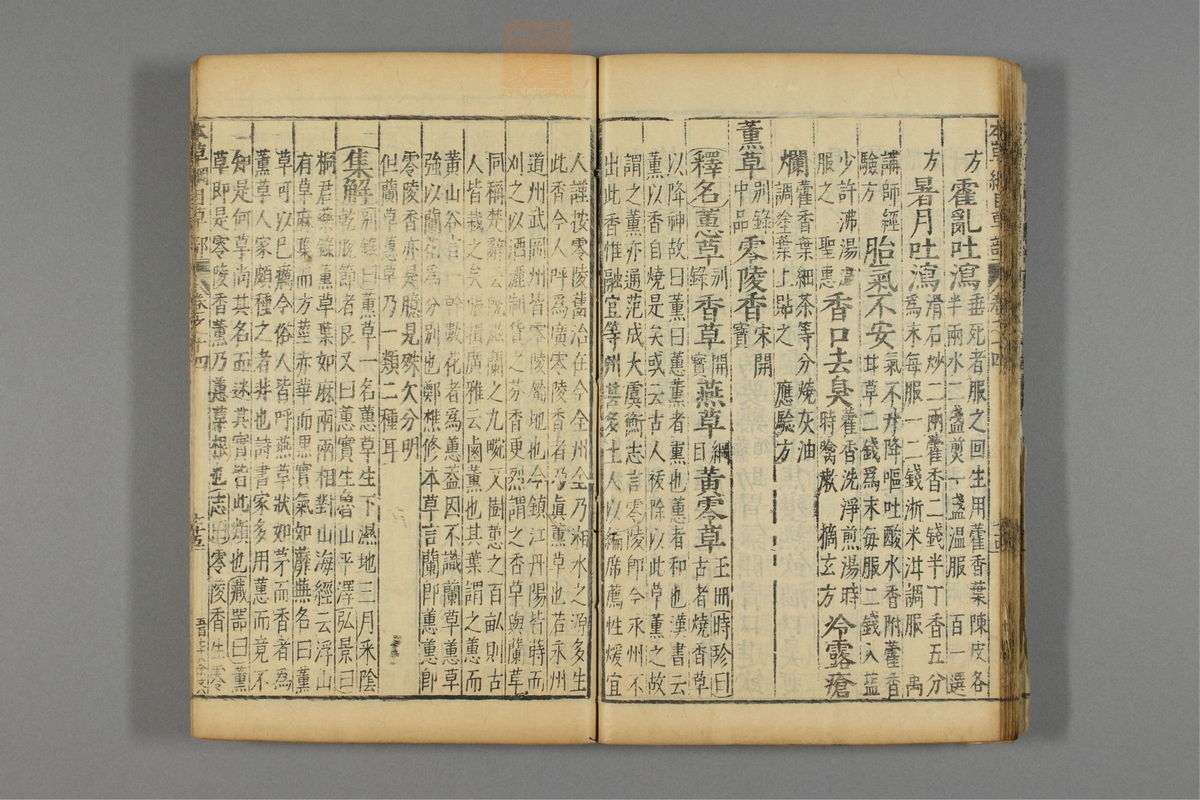 方霍亂吐瀉垂死者服之回生用藿香葉陳皮各
半兩水二盞煎一盞温服百一選
方暑月吐瀉滑石炒二兩藿香二錢半丁香五分
爲末每服一二錢淅米泔調服禹
講師經
驗方胎氣不安氣不升降嘔吐酸水香附藿香
甘草二錢爲末每服二錢入鹽
少許沸湯
服之聖惠香口去臭藿香洗淨煎湯時
時噙漱摘玄方冷露瘡
爛藿香葉細茶等分燒灰油
調塗葉上貼之應驗方
薰草别錄
中品零陵香宋開
寶
釋名蕙草别
錄香草開
寶燕草綱
目黃零草玉冊時珍曰
古者燒香草
以降神故曰薰曰蕙薰者熏也蕙者和也漢書云
薰以香自燒是矣或云古人祓除以此草薰之故
謂之薰亦通范成大虞衡志言零陵卽今永州不
出此香惟融宜等州甚多土人以編席薦性煖宜
人謹按零陵舊治在今全州全乃湘水之源多生
此香今人呼爲廣零陵香者乃眞薰草也若永州
道州武岡州皆零陵屬地也今鎭江丹陽皆蒔而
刈之以酒灑制貨之芬香更烈謂之香草與蘭草
同稱楚辭云旣滋蘭之九畹又樹蕙之百畝則古
人皆栽之矣張揖廣雅云鹵薰也其葉謂之蕙而
黃山谷言一幹數花者爲蕙蓋因不識蘭草蕙草
強以蘭花爲分别也鄭樵修本草言蘭卽蕙蕙卽
零陵香亦是臆見殊欠分明
但蘭草蕙草乃一類二種耳
集解别錄曰薰草一名蕙草生下濕地三月采陰
乾脫節者良又曰蕙實生魯山平澤弘景曰
桐君藥錄薰草葉如麻兩兩相對山海經云浮山
有草麻葉而方莖赤華而黑實氣如蘼蕪名曰薰
草可以已癘今俗人皆呼燕草狀如茅而香者爲
薰草人家頗種之者非也詩書家多用蕙而竟不
知是何草尚其名而迷其實皆此類也藏器曰薰
草即是零陵香薰乃蕙草根也志曰零陵香生零
本草綱目草部 卷之十四